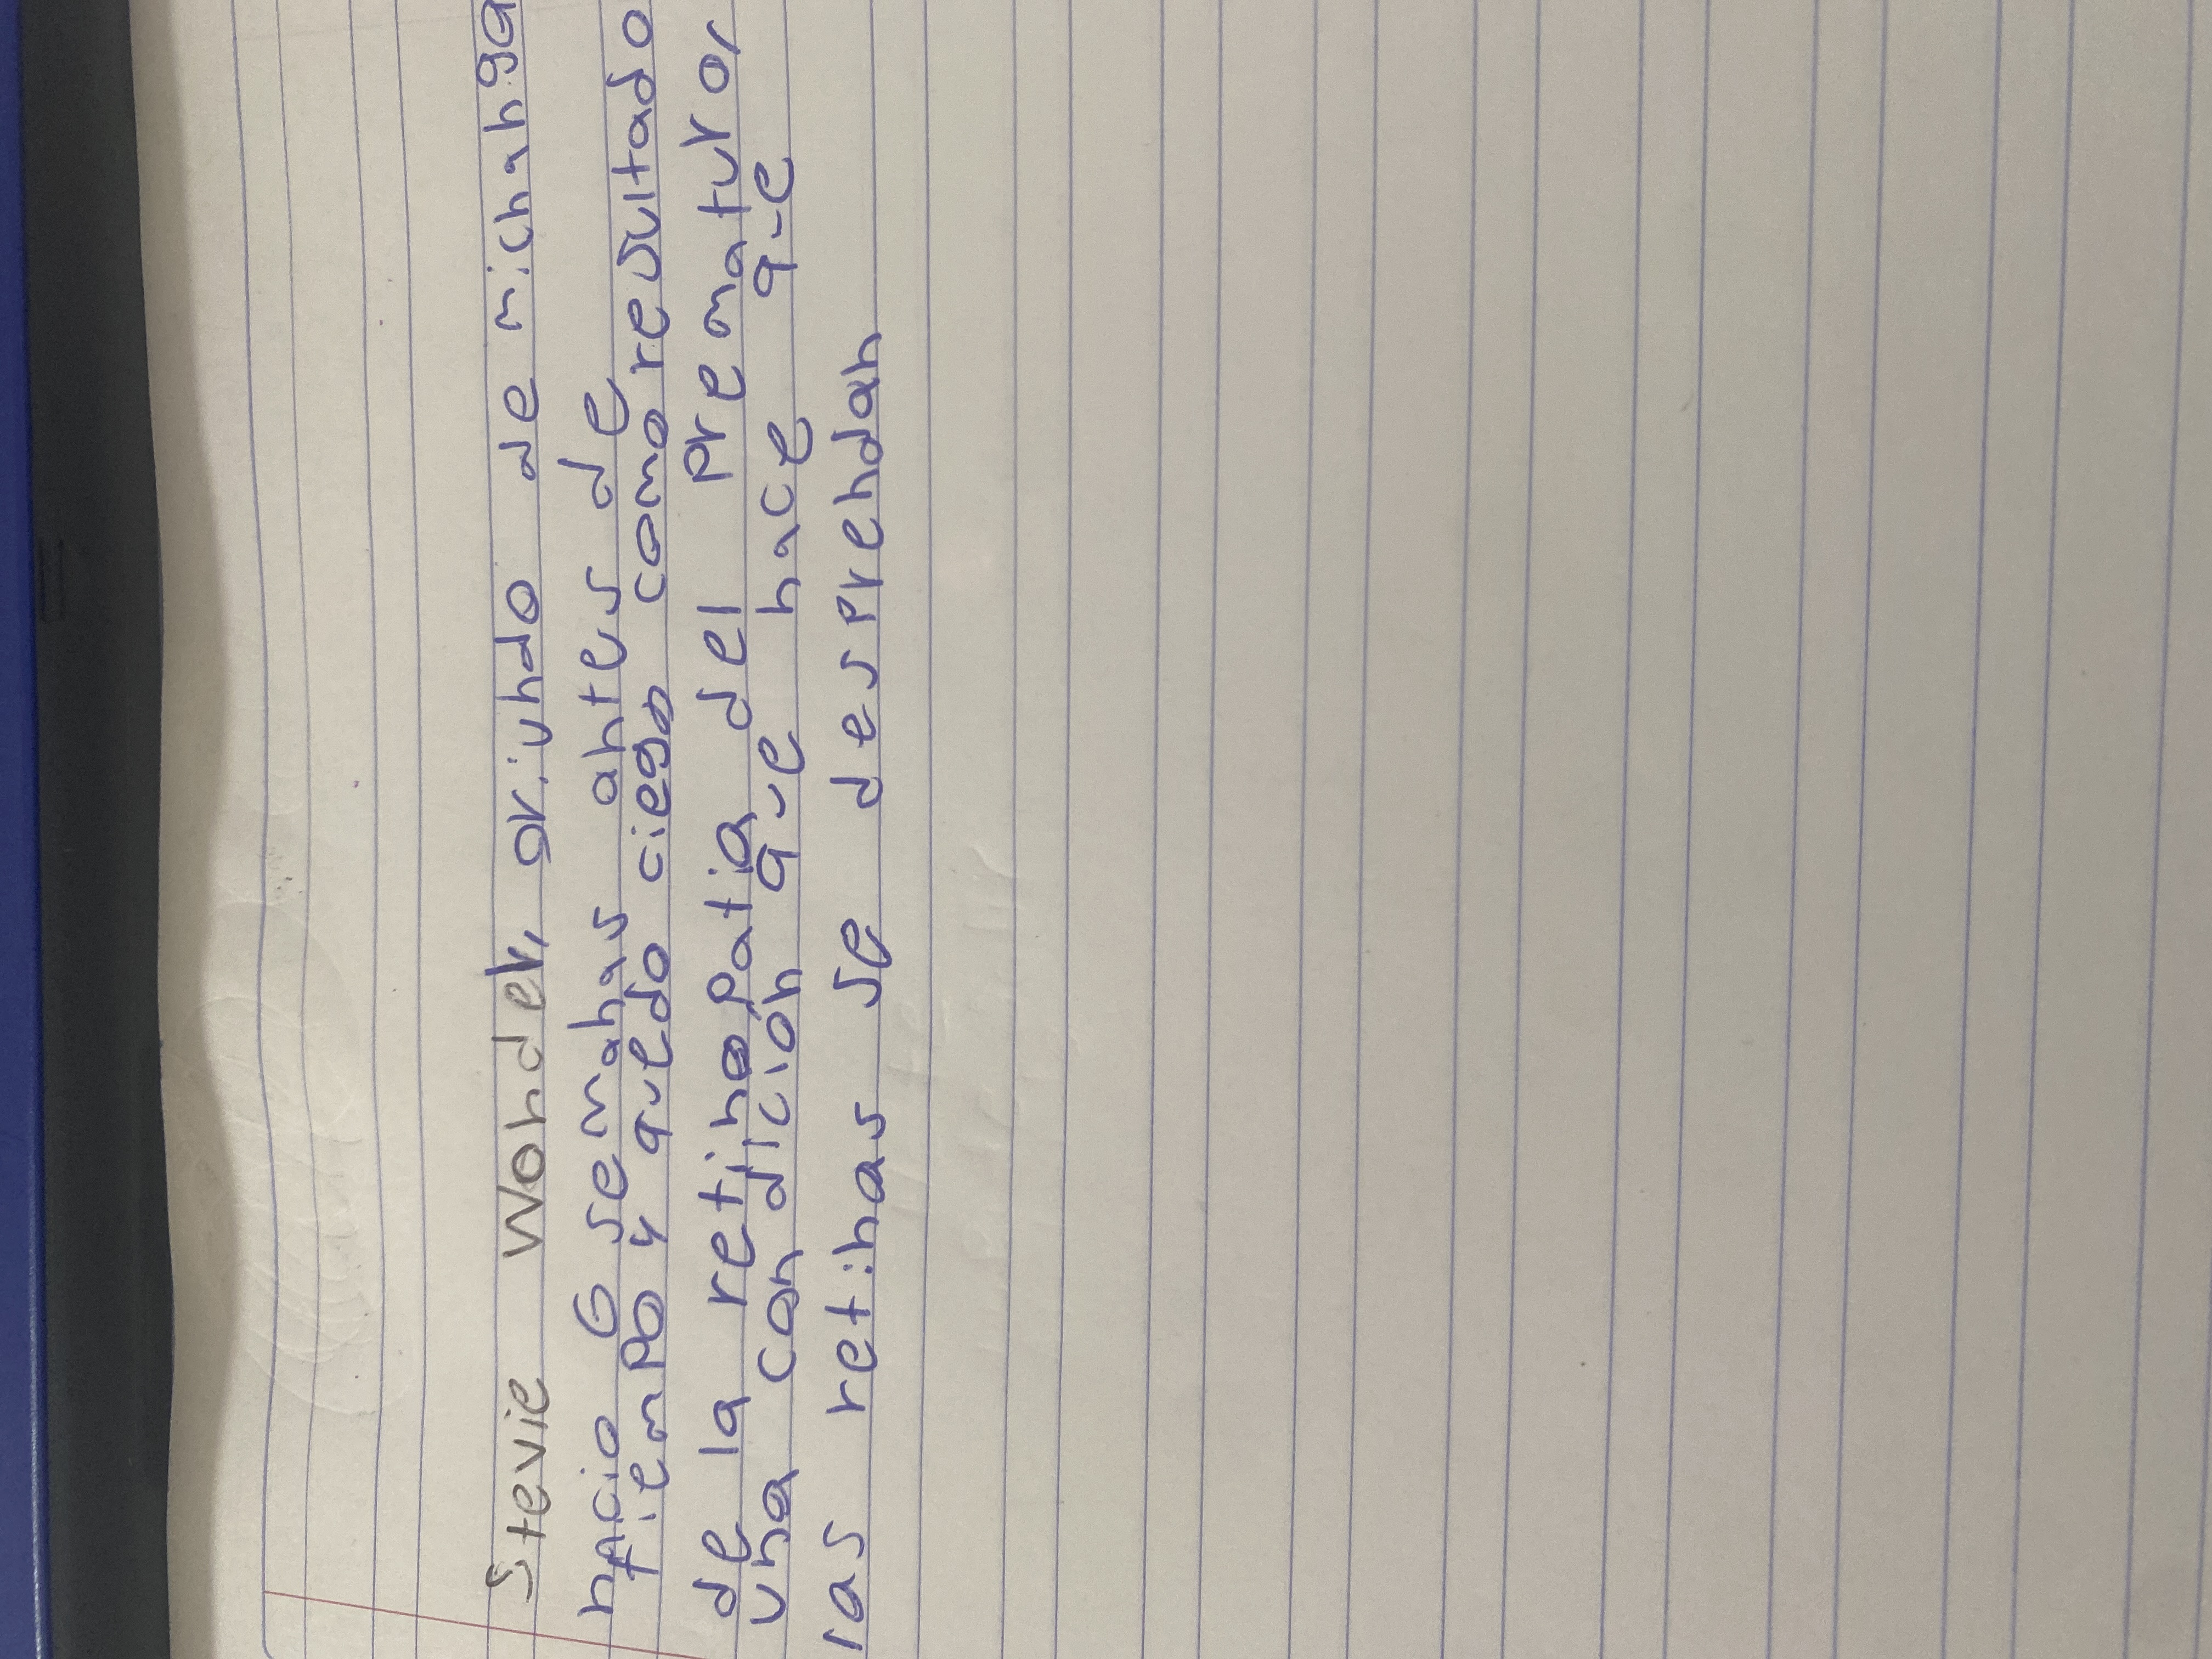 Stevie Wonder, oriundo de michahga
nacio 6 semanas antes de
tiempo y quedo ciego como resultado
de la retinopatia del prematuro,
una condición que hace que
las retinas se desprendan